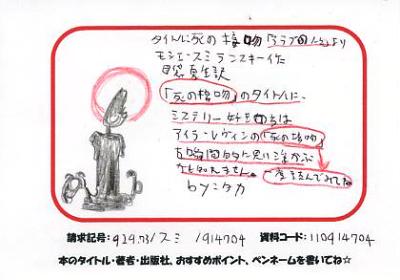 タイトル:死の接吻「ラブの人生」より
モシェ・スミランスキー作
母袋夏生訳
「死の接吻」のタイトルに、
ミステリー好きの方は
アイラ・レヴィンの「死の接吻」
を瞬間的に思い浮かぶ
かも知れません。一度読んでみてね
by:ニタカ
請求記号: 929.73/スミ /914704 資料コード:110914704
本のタイトル・著者・出版社、おすすめポイント、ペンネームを書いてね☆